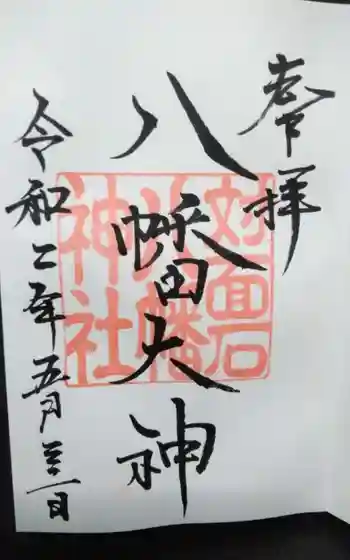 奉拝
八幡大神
対面石
八幡
神社
令和二年五月三十一日